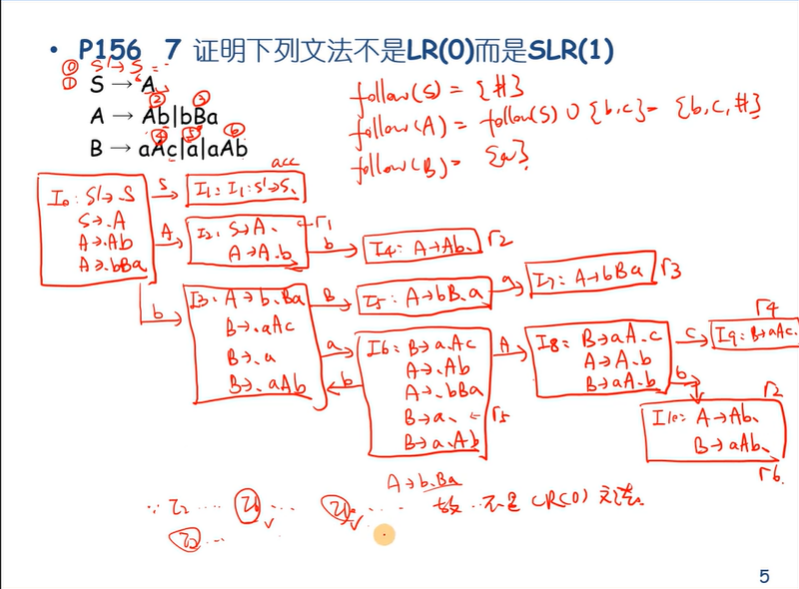 • P156 7 证明下列文法不是LR(0)而是SLR(1)
⓪ S'→S
① S → A
② ③
A → Ab|bBa
④ ⑤ ⑥
B → aAc|a|aAb
follow(S) = {#}
follow(A) = follow(S) ∪ {b,c} = {b,c,#}
follow(B) = {a}
I0: S'→.S
S→.A
A→.Ab
A→.bBa
S
acc
I1: I1: S'→S.
A
I2: S→A. ←r1
A→A.b
b
I4: A→Ab. r2
b
I3: A→b.Ba
B→.aAc
B→.a
B→.aAb
B
I5: A→bB.a
a
I7: A→bBa r3
a
b
I6: B→a.Ac
A→.Ab
A→.bBa
B→a. ←r5
B→a.Ab
A
I8: B→aA.c
A→A.b
B→aA.b
c
r4
I9: B→aAc.
b
r2
I10: A→Ab.
B→aAb.
r6
A→b.Ba
∵ I2 ···· I6 ··· I10 ··· 故 ·· 不是LR(0)文法.
5